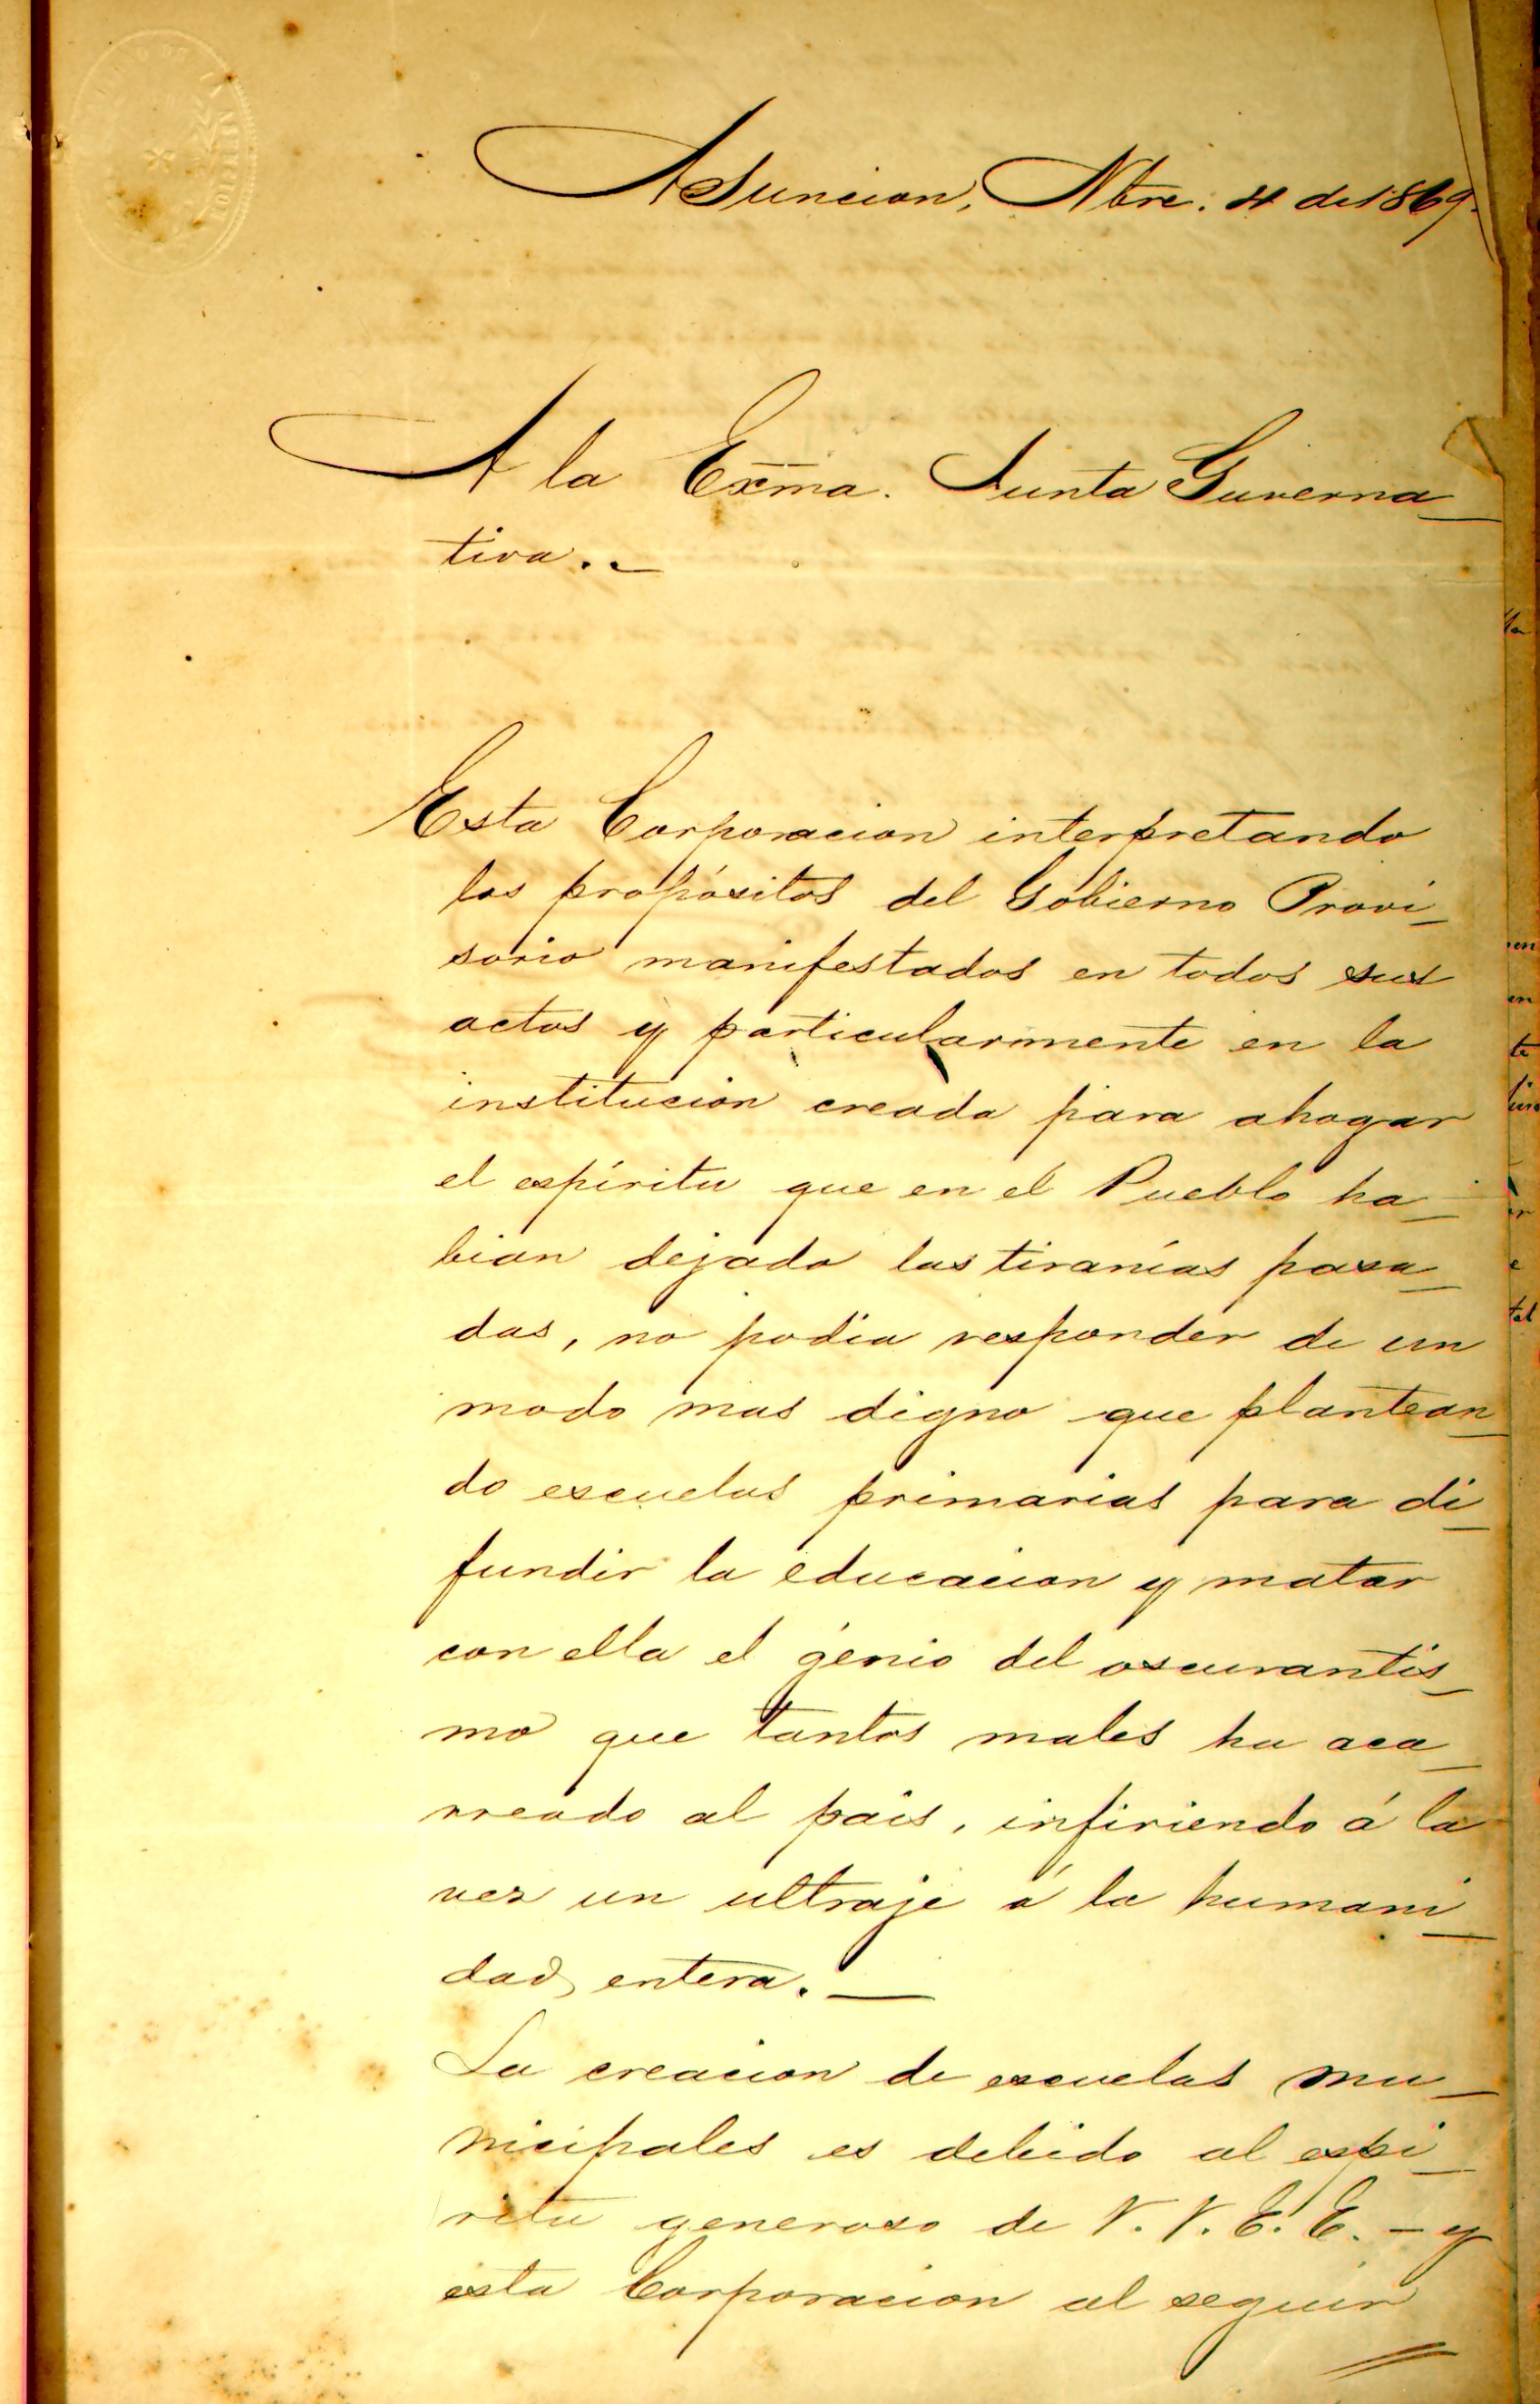 Asuncion, Nbre. 4 de 1869.
A la Exma. Junta Guverna_
tiva._
Esta Corporacion interpretando
los propósitos del Gobierno Provi_
sorio manifestados en todos sus
actos y particularmente en la
institución creada para ahogar
el espíritu que en el Pueblo ha_
bian dejado las tiranías pasa_
das, no podia responder de un
modo mas digno que plantean_
do escuelas primarias para di_
fundir la educacion y matar
con ella el génio del oscurantis_
mo que tantos males ha aca_
rreado al pais, infiriendo á la
vez un ultraje á la humani_
dad entera._
La creacion de escuelas mu_
nicipales es debido al espi_
ritu generoso de V. V. E. E. - y
esta Corporacion al seguir